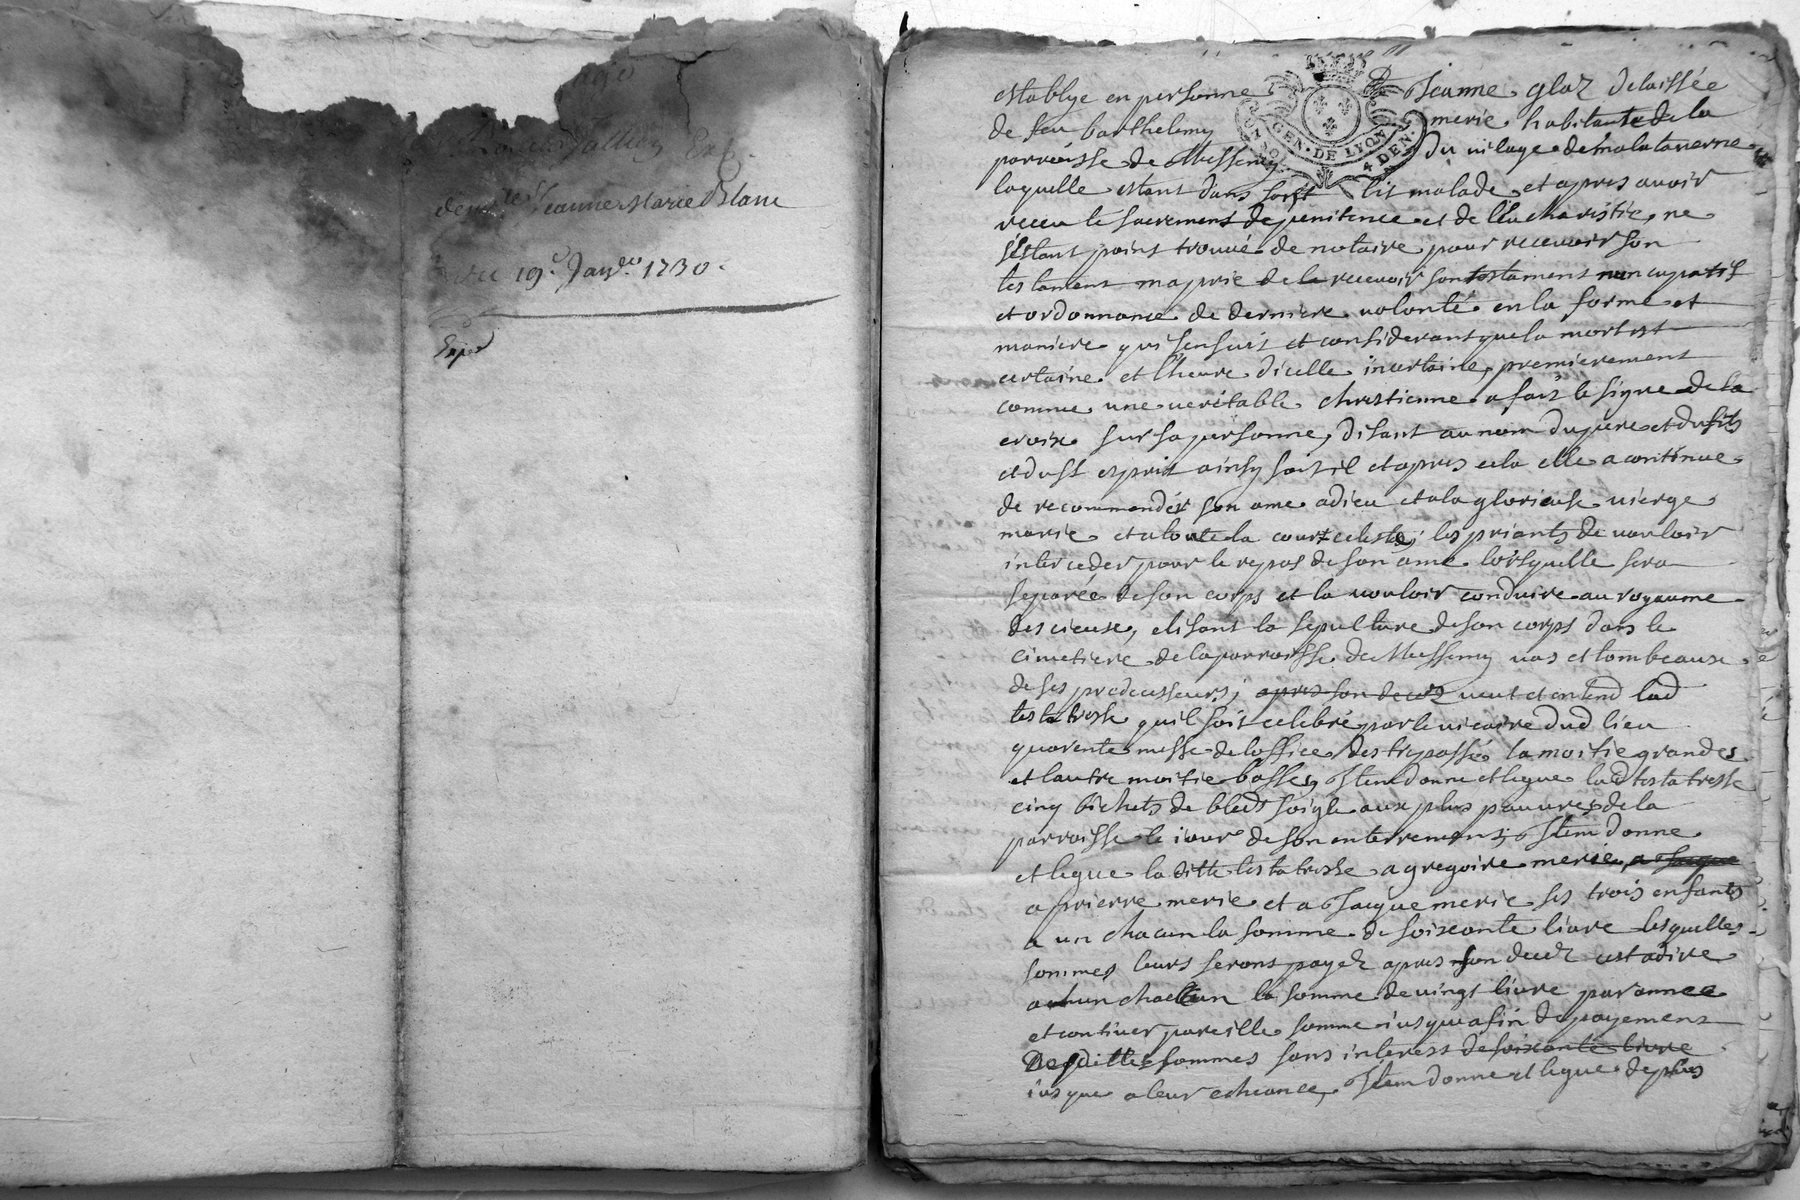 age
dem.lle Jeanne Marie Blanc
19.e Janv.er 1730.
Exped
GEN. DE LYON
4 DEN.
establye en personne Jeanne glaz delaissée
de feu barthelemy merie habitante de la
parroisse de Messemy du vilage de malataverne
laquelle estant dans son lit malade et apres avoir
receu le sacrement de penitence et de l'eucharistie ne
s'estant point trouvé de notaire pour recevoir son
testament ma prie de le recevoir son testament nuncupatif
et ordonnance de derniere volonté en la forme et
maniere qui sensuit et considerant que la mort est
certaine et l'heure dicelle incertaine, premierement
comme une veritable chrestienne a fait le signe de la
croix sur sa personne, disant au nom du pere et du fils
et du st esprit ainsy soit il et apres cela elle a continue
de recommander son ame a dieu et a la glorieuse vierge
marie et a toute la cour celeste, les priants de vouloir
interceder pour le repos de son ame lorsquelle sera
separée de son corps et la vouloir conduire au royaume
des cieux, elisant la sepulture de son corps dans le
cimetiere de la parroisse de Messemy vas et tombeaux
de ses predecesseurs, apres son deces veut et entend lad
testatresse quil soit celebré par le vicaire dud lieu
quarente messe de loffice des trepassé la moitie grandes
et lautre moitie basses, Item donne et legue lad testatresse
cinq bichets de bled soigle aux plus pauvres de la
parroisse le iour de son enterrement, Item donne
et legue la ditte testatresse a gregoire merie, a Jacque
a prierre merie et a Jacque merie ses trois enfants
a un chacun la somme de soixente livre lesquelles
sommes leurs seront payez apres son decez cest a dire
a un chaccun la somme de vingt livre par annee
et continuer pareille somme iusqua fin de payement
Desdittes sommes sans interest de soixante livre
iusque a leur echeance, Item donne et legue de plus